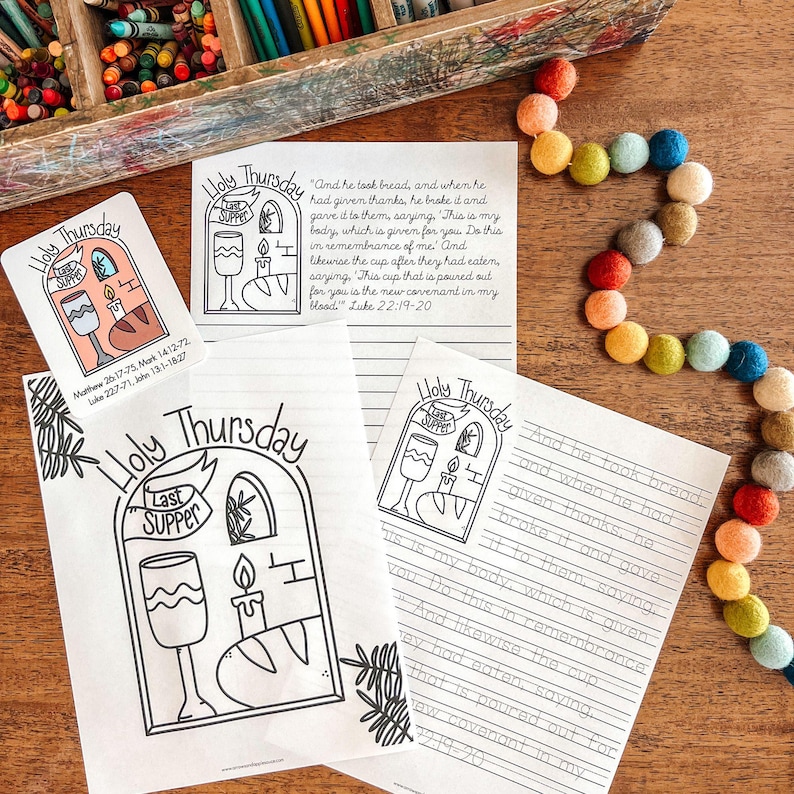 Holy Thursday
Last
Supper
"And he took bread, and when he
had given thanks, he broke it and
gave it to them, saying, 'This is my
body, which is given for you. Do this
in remembrance of me.' And
likewise the cup after they had eaten,
saying, 'This cup that is poured out
for you is the new covenant in my
blood.'" Luke 22:19-20
Holy Thursday
Last
Supper
Matthew 26:17-75, Mark 14:12-72,
Luke 22:7-71, John 13:1-18:27
Holy Thursday
Last
Supper
www.arrowsandapplesauce.com
Holy Thursday
Last
Supper
And he took bread,
and when he had
given thanks, he
broke it and gave
it to them, saying,
this is my body, which is given
you. Do this in remembrance
And likewise the cup
they had eaten, saying,
that is poured out for
new covenant in my
22:19-20